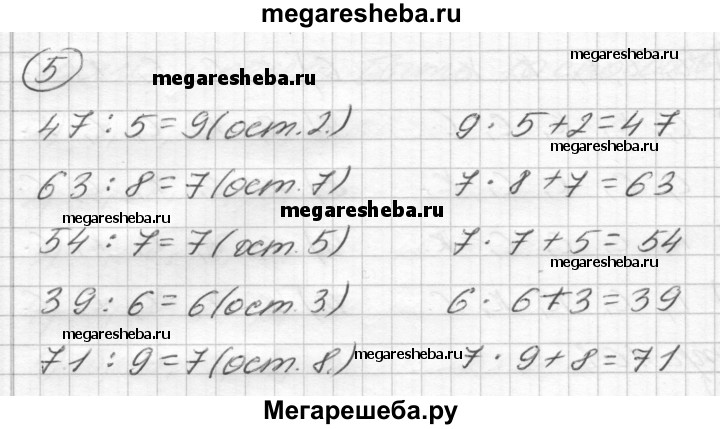 megaresheba.ru
5
megaresheba.ru
megaresheba.ru
47 : 5 = 9 (ост. 2.) 9 · 5 + 2 = 47
megaresheba.ru
63 : 8 = 7 (ост. 7) 7 · 8 + 7 = 63
megaresheba.ru
megaresheba.ru
54 : 7 = 7 (ост. 5) 7 · 7 + 5 = 54
megaresheba.ru
39 : 6 = 6 (ост. 3.) 6 · 6 + 3 = 39
megaresheba.ru
71 : 9 = 7 (ост. 8.) megaresheba.ru 7 · 9 + 8 = 71
Мегарешеба.ру